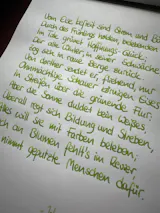 Vom Eise befreit sind Strom und Bä
Durch des Frühlings holden, belebenden
Im Tale grünet Hoffnungs-Glück;
alte Winter, in seiner Schwäche,
Zog sich in raue Berge zurück.
Von dorther sendet er, fliehend, nur
Ohnmächtige Schauer körnigen Eises
In Streifen über die grünende Flur;
Aber die Sonne duldet kein Weißes,
Überall regt sich Bildung und Streben,
will sie mit Farben beleben;
an Blumen fehlt's im Revier,
nimmt geputzte Menschen dafür.